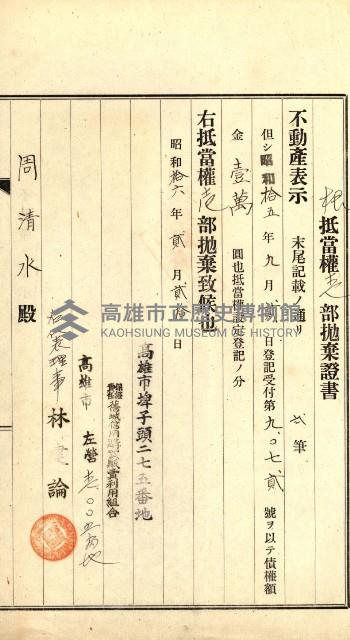 根抵當權壱部拋棄證書
不動產表示 末尾記載ノ通リ 弐筆
但シ昭和拾五年九月 日登記受付第九〇七貳號ヲ以テ債權額
金壹萬 圓也抵當權 定登記ノ分
右抵當權壱部拋棄致候也
昭和拾六年貳月貳 日
高雄市埤子頭二七五番地
舊城信用 販賣利用組合
高雄市左營 〇〇 番地
右 理事 林 論
周清水殿
高雄市立歷史博物館
KAOHSIUNG MUSEUM OF HISTORY